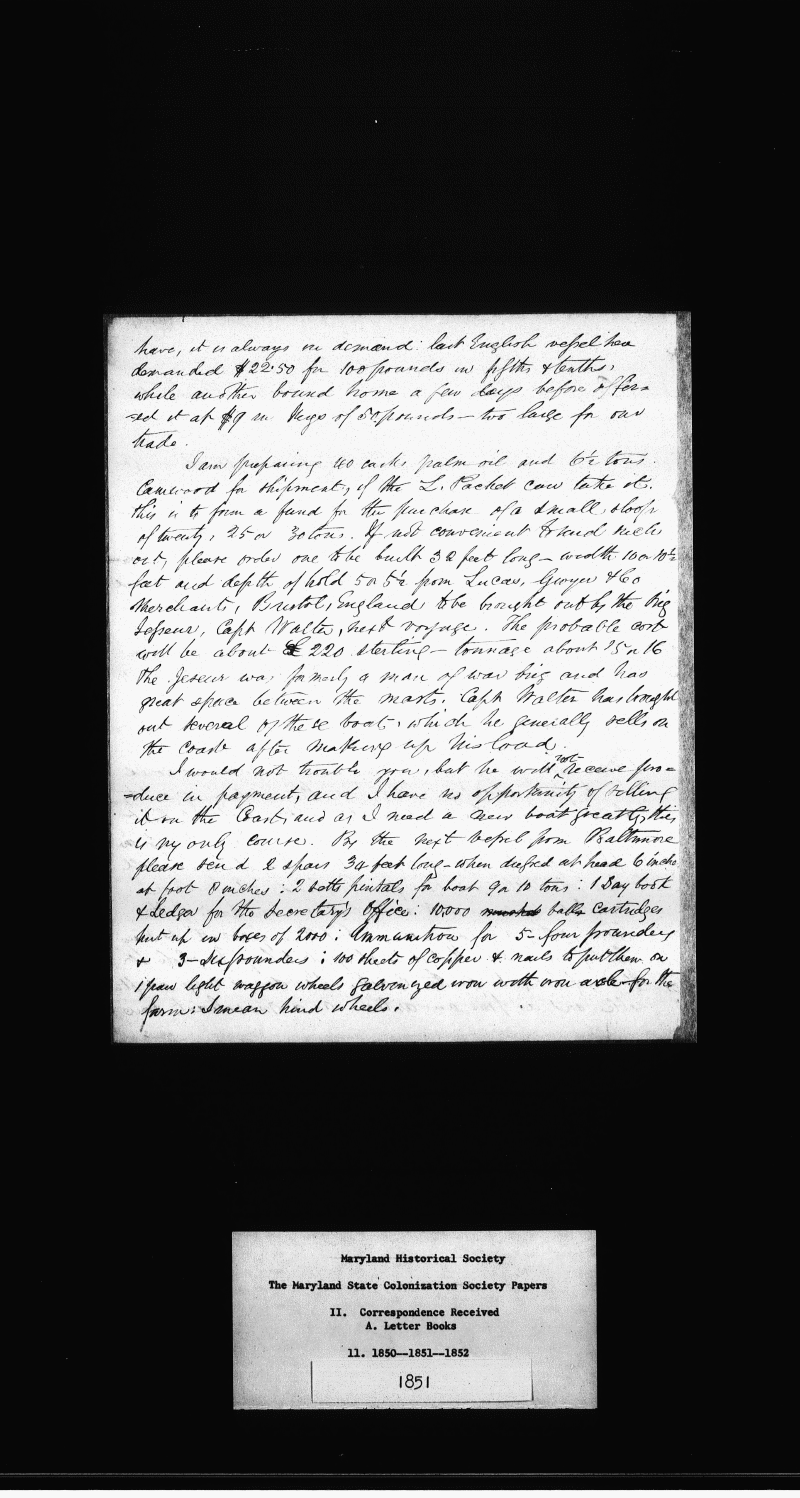 have, it is always in demand: last English vessel here
demanded $22.50 for 100 pounds in fifths & tenths,
while another bound home a few days before offer=
=ed it at $9 in Kegs of 50 pounds — too large for our
trade.
I am preparing 40 casks palm oil and 6½ tons
Camwood for shipment, if the L. Packet can take it.
this is to form a fund for the purchase of a small sloop
of twenty, 25 or 30 tons. If not convenient to send such
out, please order one to be built 32 feet long — width 10 or 10½
feet and depth of hold 5 or 5½ from Lucas, Gwyer & Co
Merchants, Bristol, England to be brought out by the brig
Capt Walter, next voyage. The probable cost
will be about £220 sterling — tonnage about 15 or 16
The was formerly a man of war brig and has
great space between the masts. Capt Walter has brought
out several of these boats, which he generally sells on
the coast after making up his load.
I would not trouble you, but he will not receive pro=
=duce in payment, and I have no opportunity of selling
it on the Coast, and as I need a new boat greatly, this
is my only course. By the next vessel from Baltimore
please send 2 spars 34 feet long — when dressed at head 6 inches
at foot 8 inches: 2 setts pintals for boat 9 or 10 tons: 1 Day book
& Ledger for the Secretary's Office: 10,000 balls cartridges
put up in boxes of 2000: Ammunition for 5 — four pounders
& 3 — six pounders: 100 sheets of copper & nails to put them on
1 pair light waggon wheels galvanized iron with iron axle for the
farm: I mean hind wheels.
Maryland Historical Society
The Maryland State Colonization Society Papers
II. Correspondence Received
A. Letter Books
11. 1850--1851--1852
1851